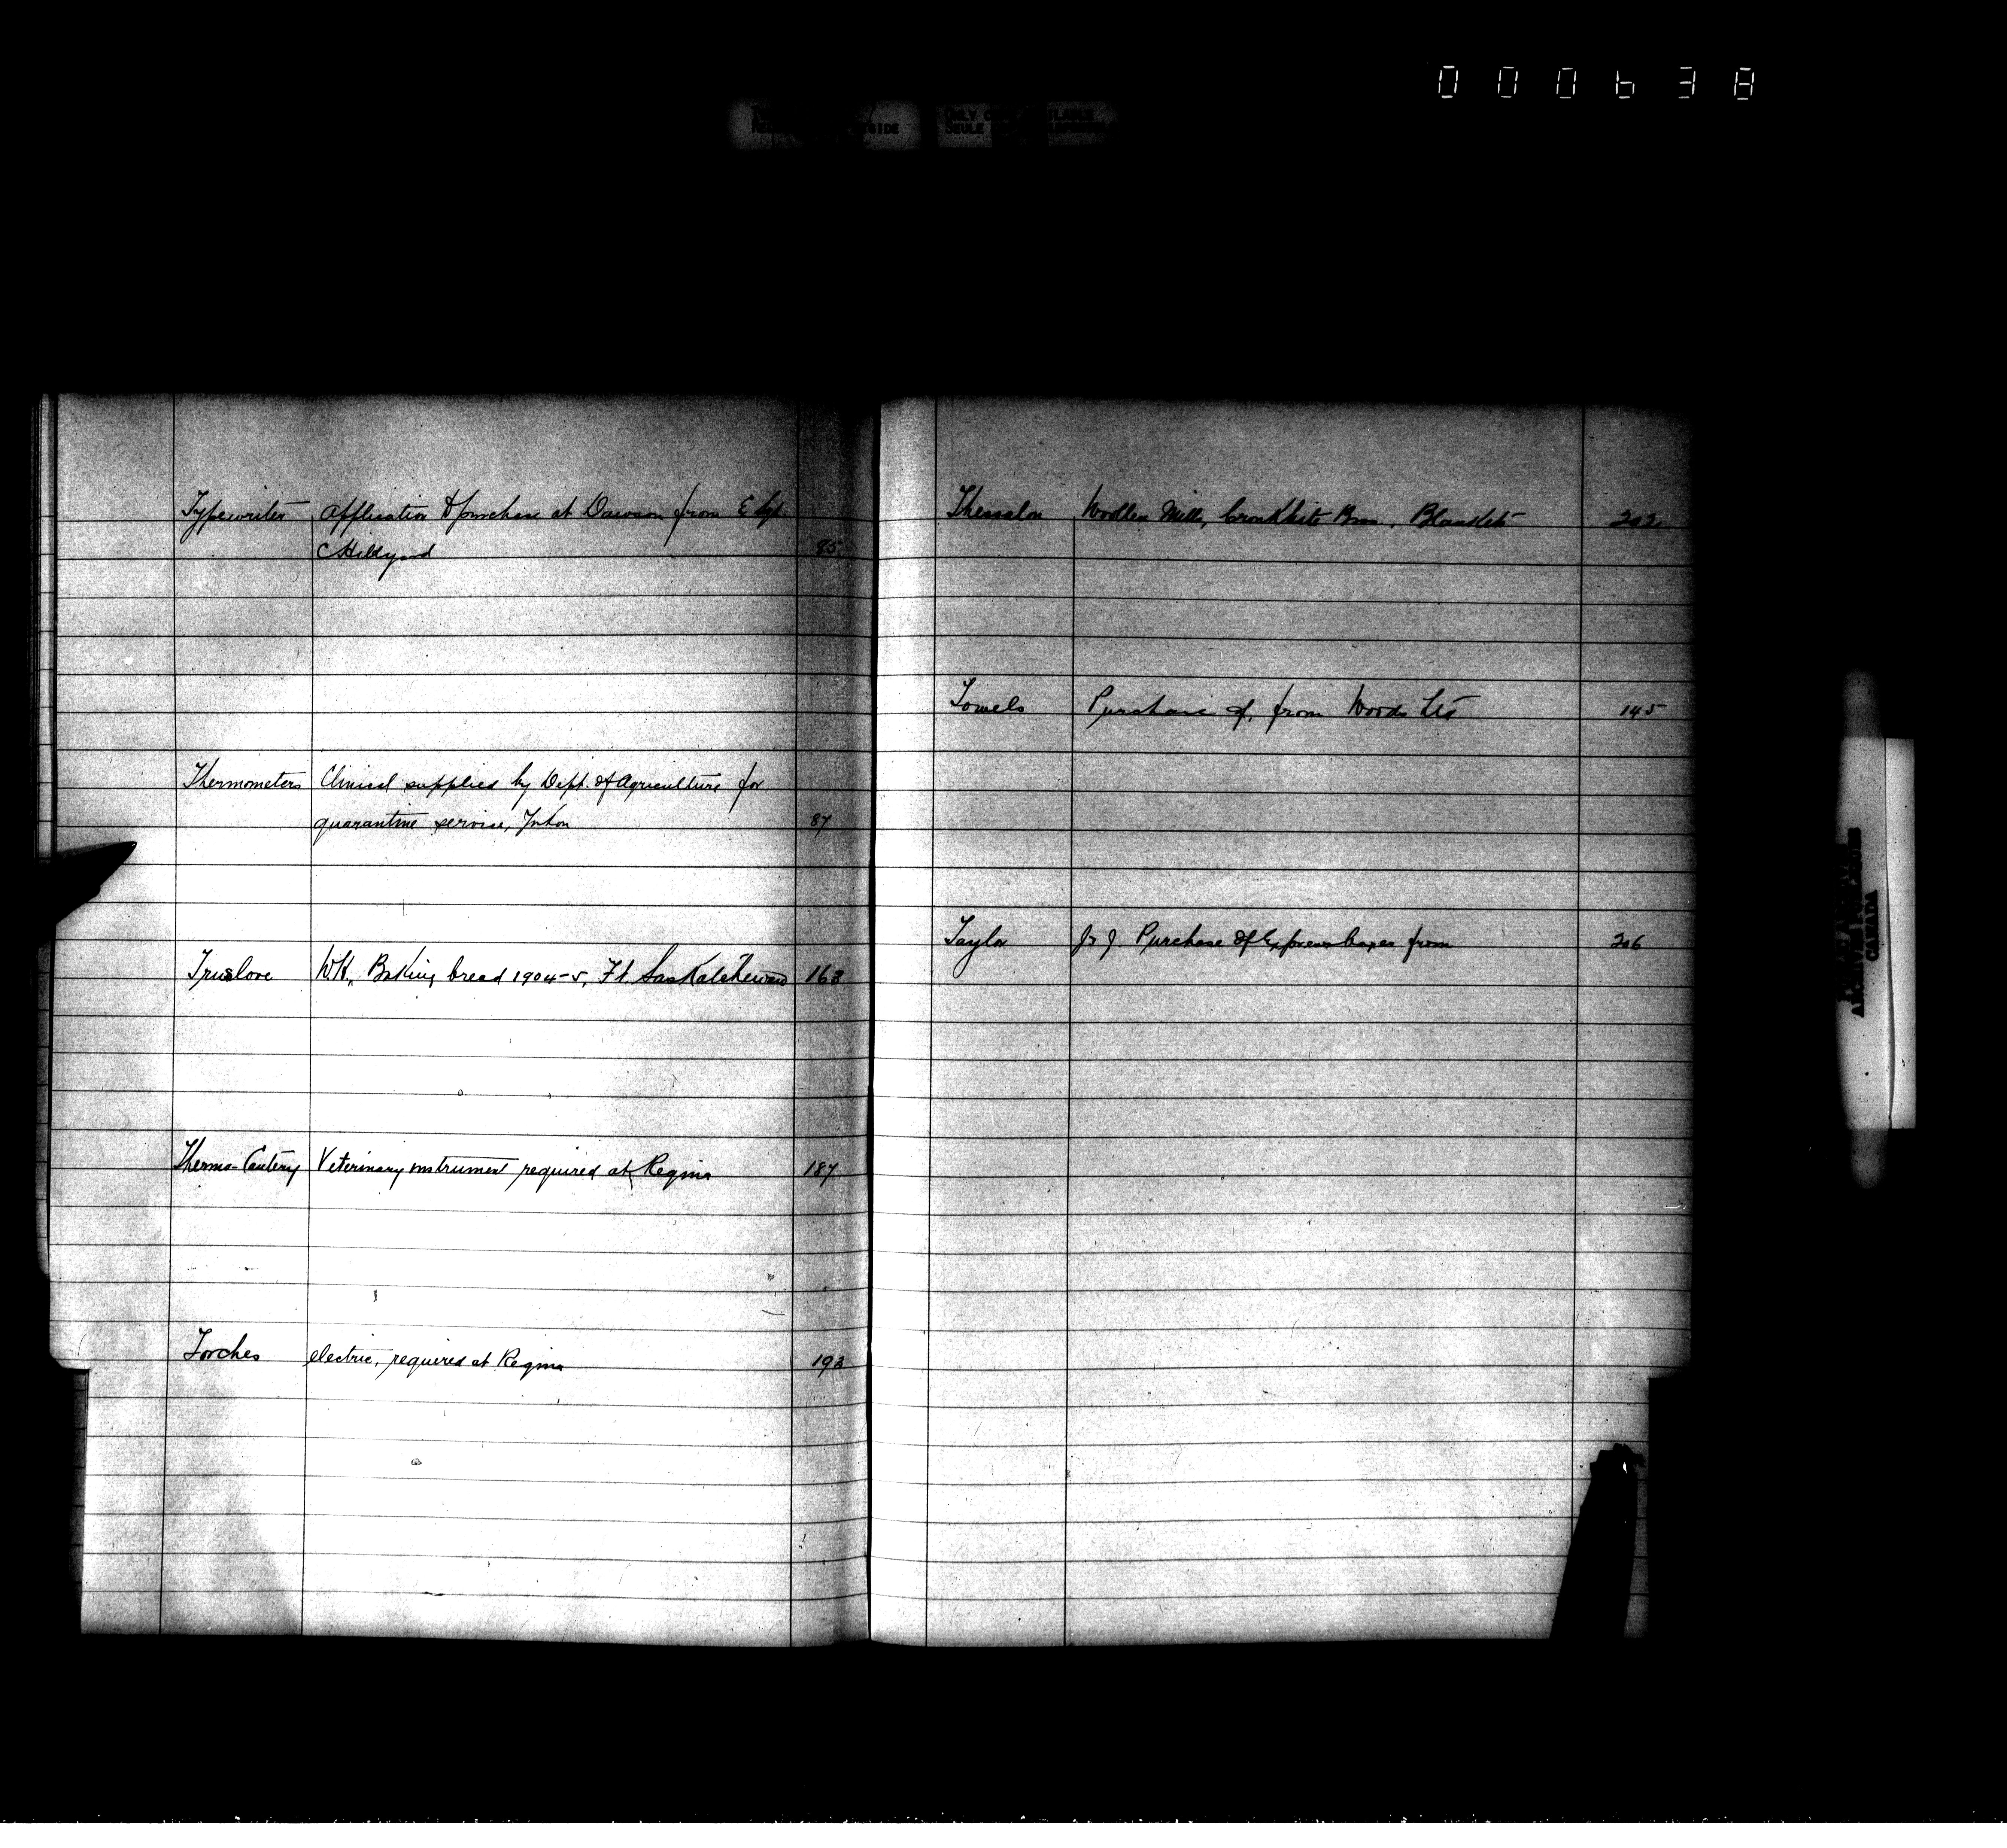 000638
Typewriter Application to purchase at Dawson from
85
Thermometers Clinical supplied by Dept. of Agriculture for
quarantine service, Yukon 87
Truslove W.H., Baking bread 1904-5, Ft. Saskatchewan 163
Thermo-Cautery Veterinary instrument required at Regina 187
Torches electric, required at Regina 193
Thessalon Woollen Mills, Cronkhite Bros., Blankets 202
Towels Purchase of, from Woods Ltd 145
Taylor J.J. Purchase of Express boxes from 206
ARCHIVES
CANADA